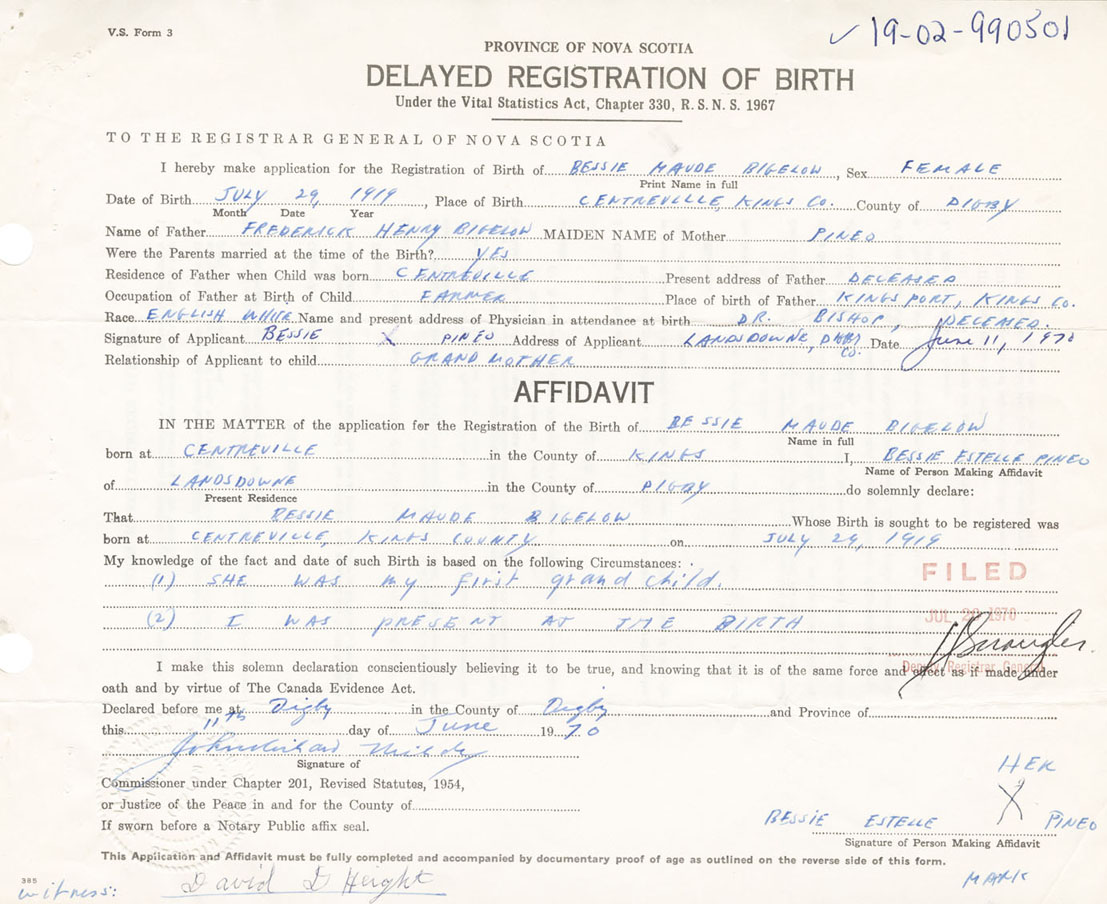 V.S. Form 3
19-02-990501
PROVINCE OF NOVA SCOTIA
DELAYED REGISTRATION OF BIRTH
Under the Vital Statistics Act, Chapter 330, R.S.N.S. 1967
TO THE REGISTRAR GENERAL OF NOVA SCOTIA
I hereby make application for the Registration of Birth of BESSIE MAUDE BIGELOW, Sex FEMALE
Print Name in full
Date of Birth JULY 29, 1919, Place of Birth CENTREVILLE, KINGS CO. County of DIGBY
Month Date Year
Name of Father FREDERICK HENRY BIGELOW MAIDEN NAME of Mother PINEO
Were the Parents married at the time of the Birth? YES
Residence of Father when Child was born CENTREVILLE Present address of Father DECEASED
Occupation of Father at Birth of Child FARMER Place of birth of Father KINGSPORT, KINGS CO.
Race ENGLISH WHITE Name and present address of Physician in attendance at birth DR. BISHOP, DECEASED.
Signature of Applicant BESSIE X PINEO Address of Applicant LANDSDOWNE, DIGBY CO. Date June 11, 1970
Relationship of Applicant to child GRANDMOTHER
AFFIDAVIT
IN THE MATTER of the application for the Registration of the Birth of BESSIE MAUDE BIGELOW
Name in full
born at CENTREVILLE in the County of KINGS I, BESSIE ESTELLE PINEO
Name of Person Making Affidavit
of LANDSDOWNE in the County of DIGBY do solemnly declare:
Present Residence
That BESSIE MAUDE BIGELOW Whose Birth is sought to be registered was
born at CENTREVILLE, KINGS COUNTY on JULY 29, 1919
My knowledge of the fact and date of such Birth is based on the following Circumstances:
(1) SHE WAS my first grand child.
FILED
(2) I WAS PRESENT AT THE BIRTH
JUL 1970
Deputy Registrar General
I make this solemn declaration conscientiously believing it to be true, and knowing that it is of the same force and effect as if made under
oath and by virtue of The Canada Evidence Act.
Declared before me at Digby in the County of Digby and Province of
this 11th day of June 1970
Signature of
Commissioner under Chapter 201, Revised Statutes, 1954,
or Justice of the Peace in and for the County of
If sworn before a Notary Public affix seal.
HER
BESSIE ESTELLE X PINEO
Signature of Person Making Affidavit
MARK
This Application and Affidavit must be fully completed and accompanied by documentary proof of age as outlined on the reverse side of this form.
385
witness: David D Height